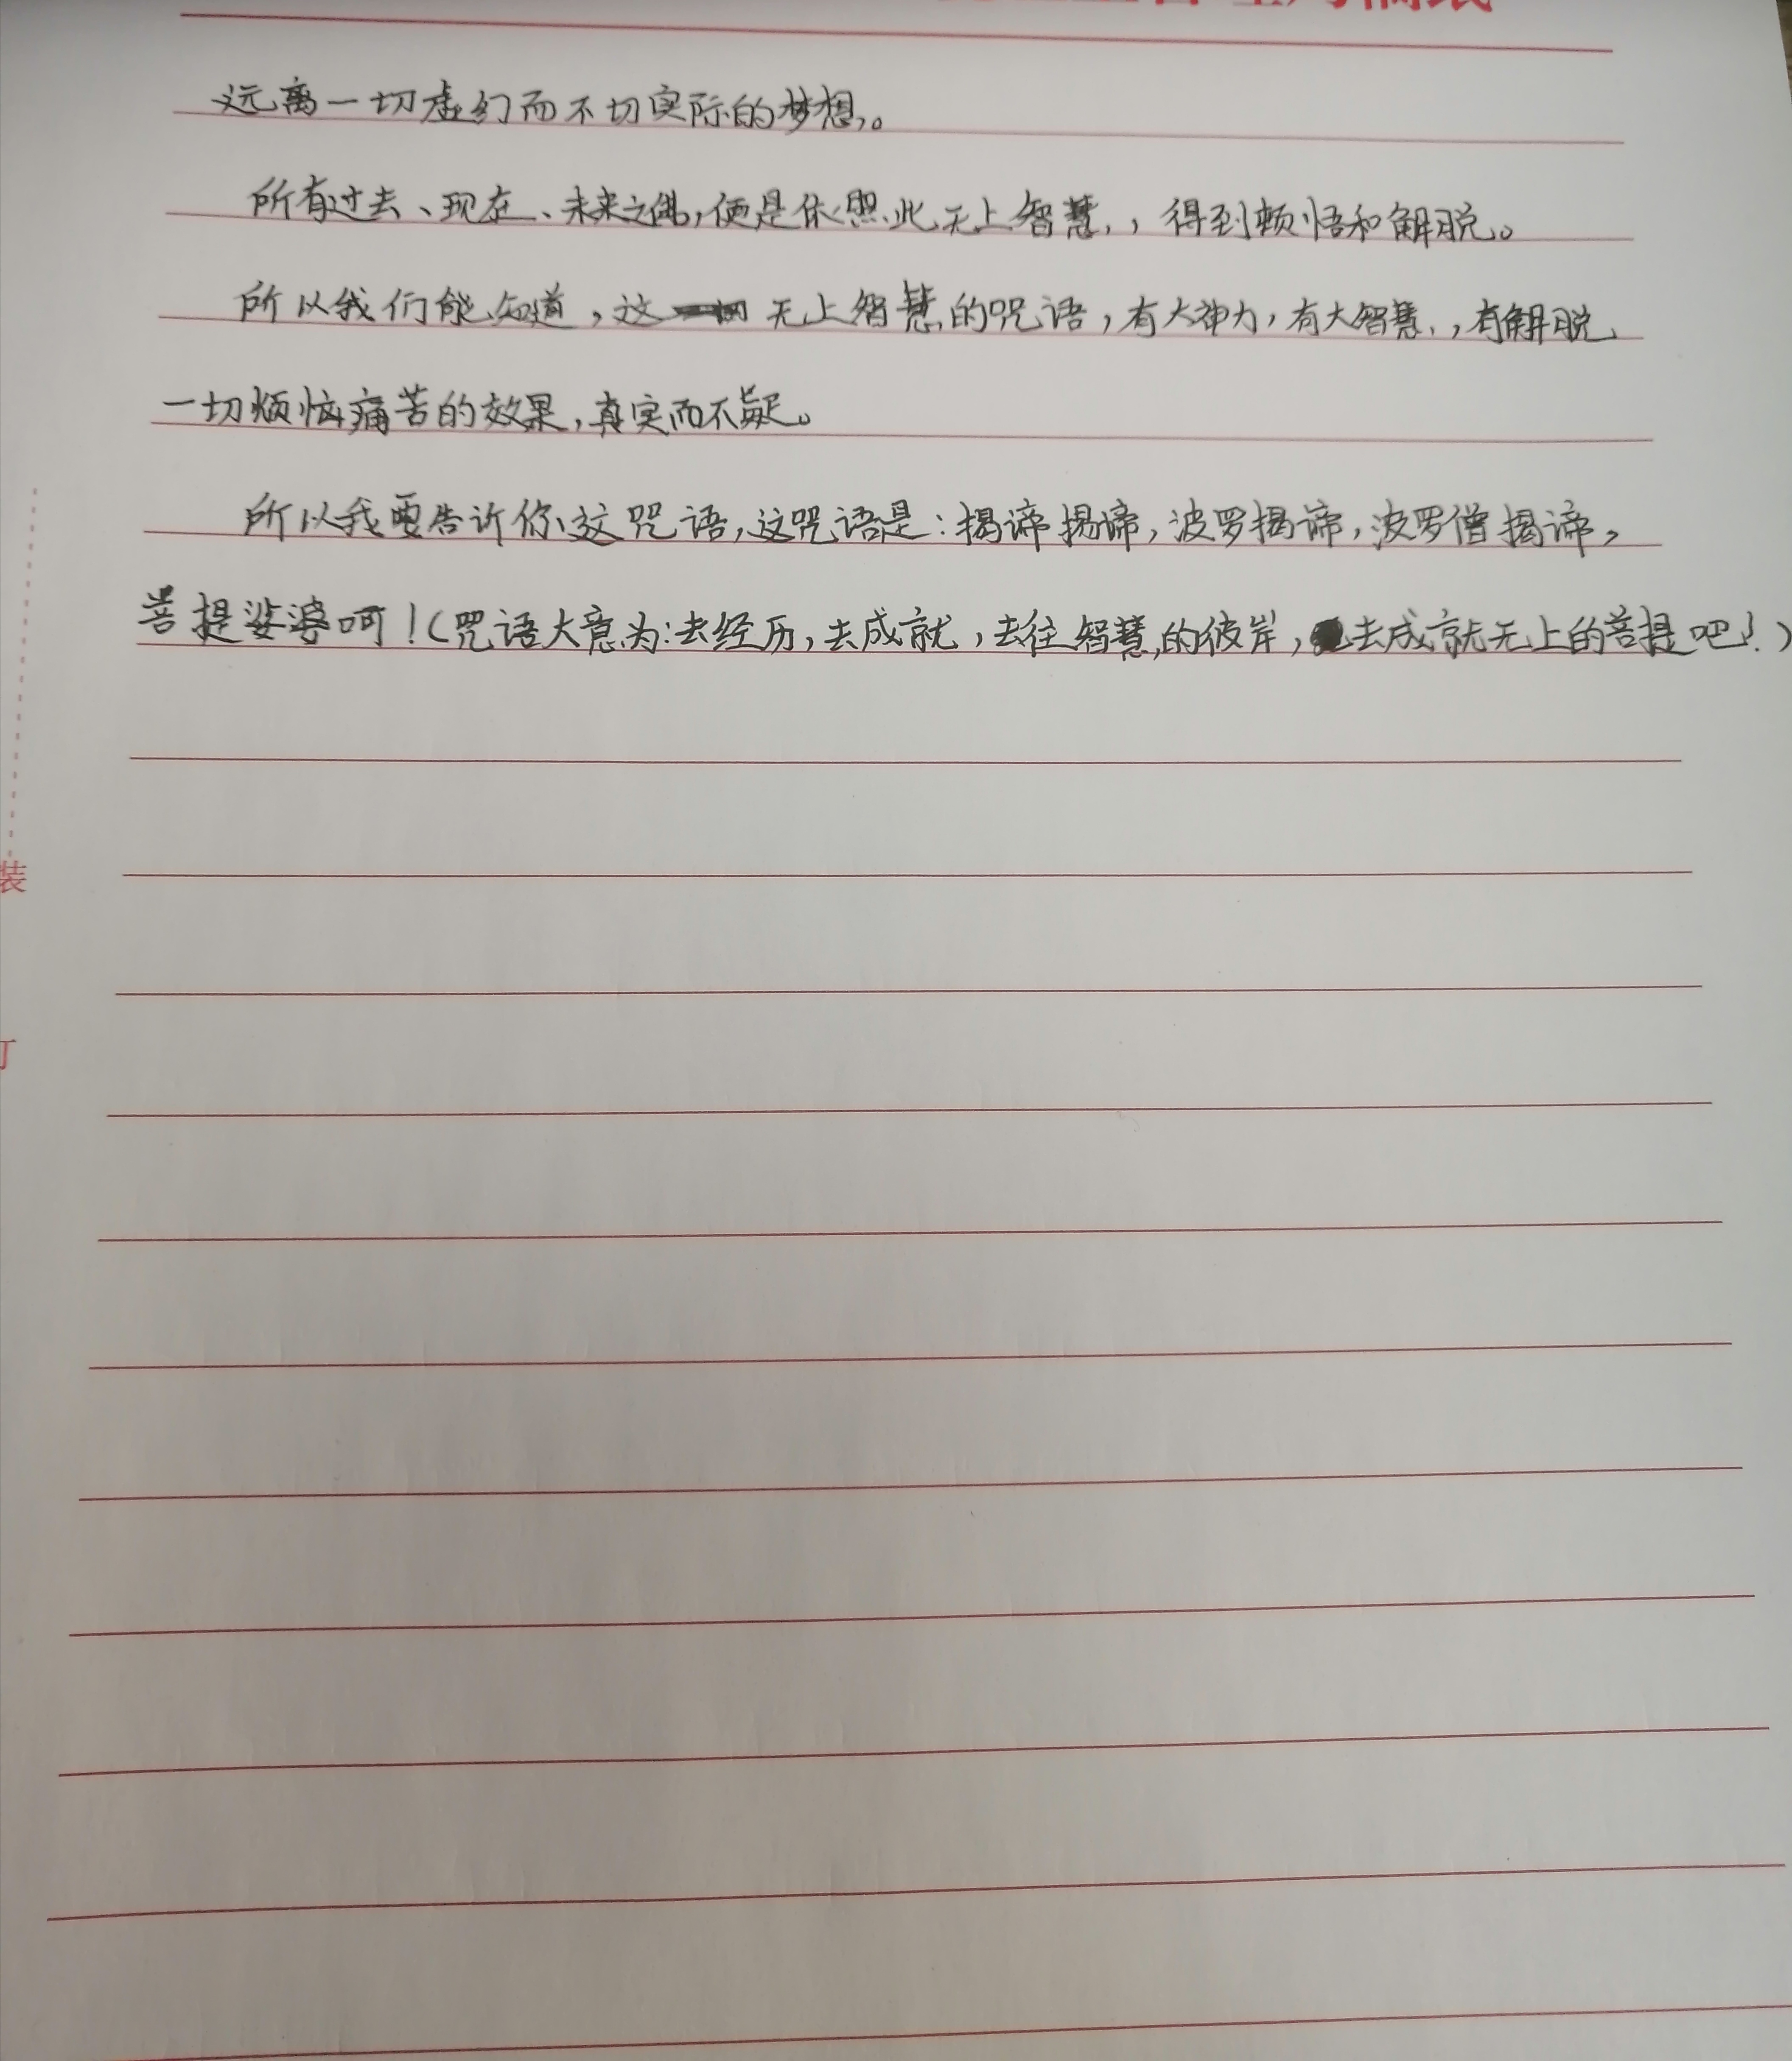 远离一切虚幻而不切实际的梦想。
所有过去、现在、未来之佛,便是依照此无上智慧,得到顿悟和解脱。
所以我们能知道,这 无上智慧的咒语,有大神力,有大智慧,有解脱
一切烦恼痛苦的效果,真实而不疑。
所以我要告诉你这咒语,这咒语是:揭谛揭谛,波罗揭谛,波罗僧揭谛,
菩提娑婆呵!(咒语大意为:去经历,去成就,去往智慧的彼岸,去成就无上的菩提吧!)
装
订